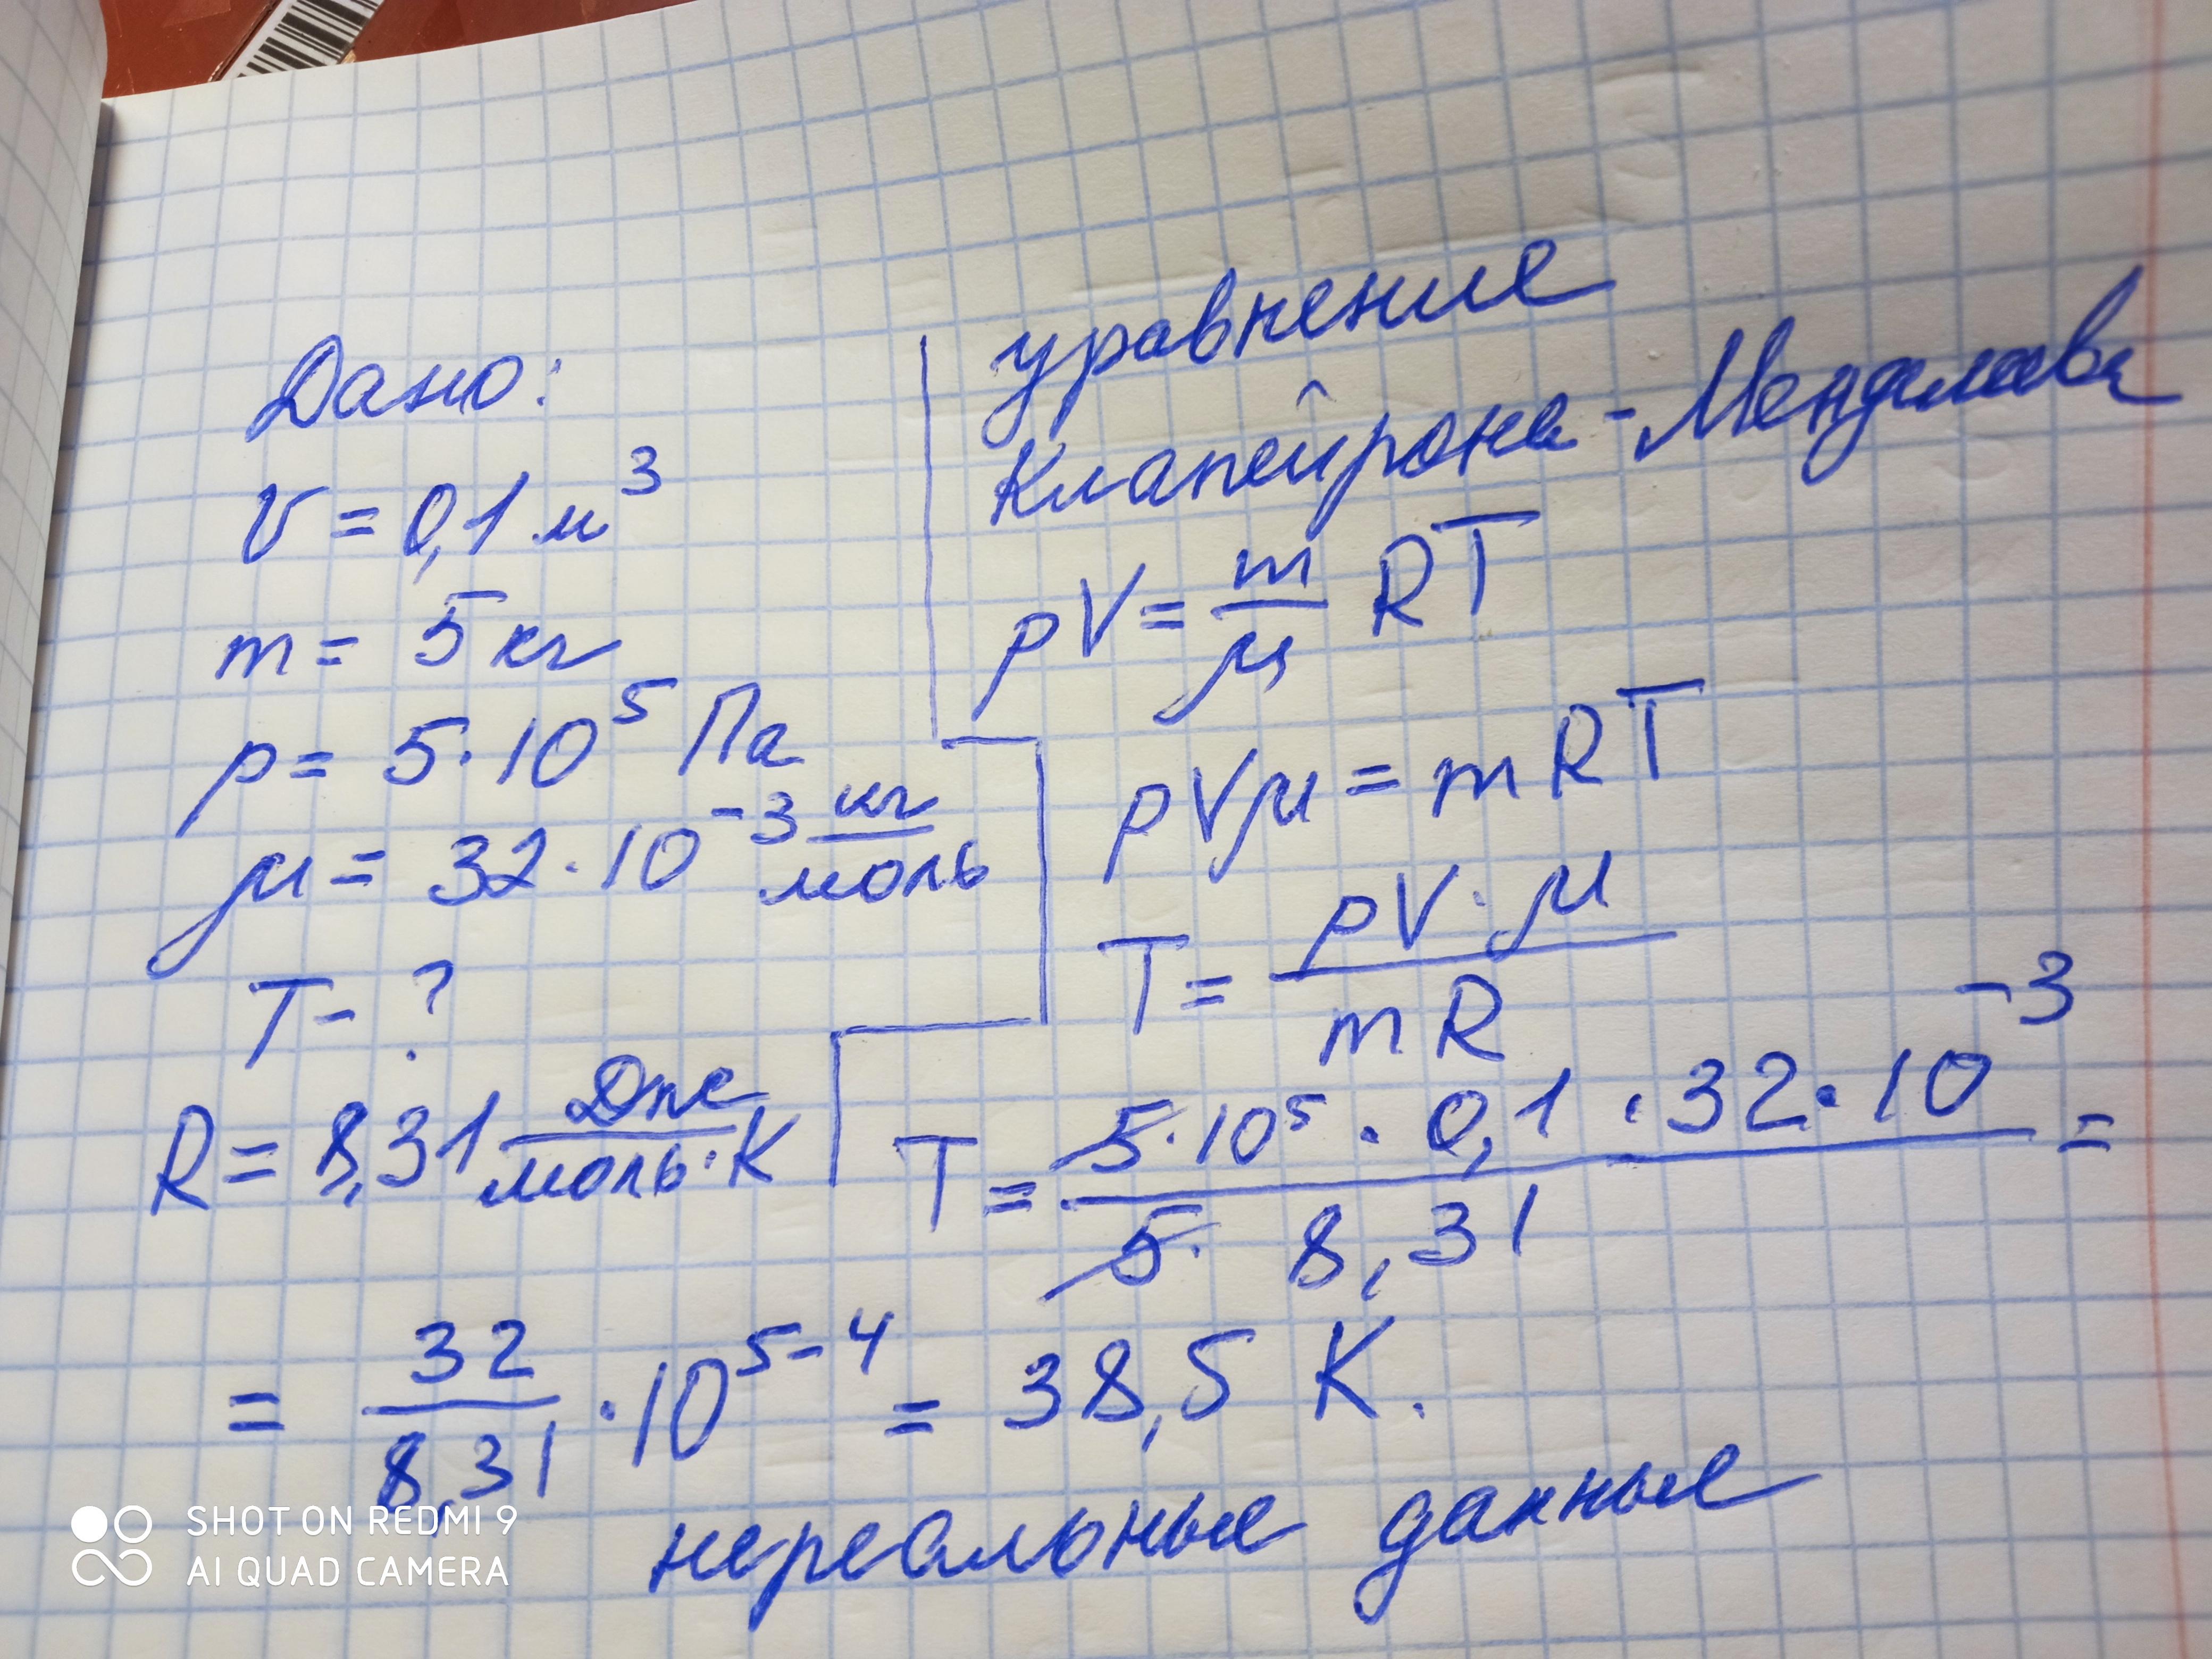 Дано:
V = 0,1 м³
m = 5 кг
p = 5·10⁵ Па
μ = 32·10⁻³ кг/моль
T - ?
R = 8,31 Дж/моль·К
уравнение
Клапейрона - Менделеева
pV = m/μ RT
pVμ = mRT
T = pV·μ / mR
T = 5·10⁵ · 0,1 · 32·10⁻³ / 5· 8,31 =
= 32/8,31 · 10⁵⁻⁴ = 38,5 К.
нереальные данные
SHOT ON REDMI 9
AI QUAD CAMERA